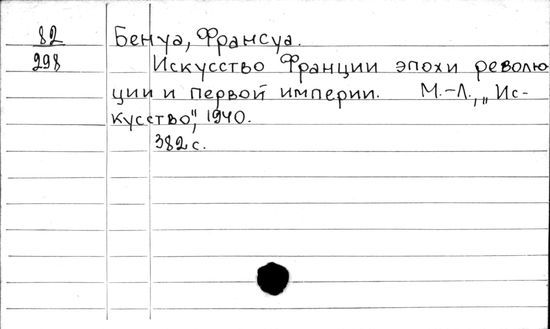 82 Бенуа, Франсуа.
298 Искусство Франции эпохи револю
ции и первой империи. М.-Л., „Ис-
кусство", 1940.
382 с.